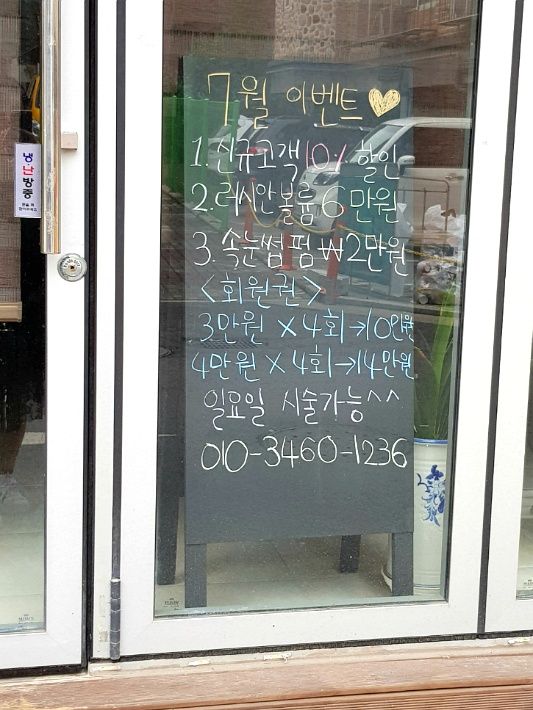 7월 이벤트♡
1. 신규고객 10% 할인
2. 러시안볼륨 6만원
3. 속눈썹 펌 ₩2만원
<회원권>
3만원 × 4회→10만원
4만원 × 4회→14만원
일요일 시술가능^^
010-3460-1236
냉난방중